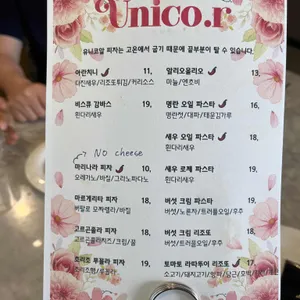 Unico.r
유니코알 피자는 고온에서 굽기 때문에 끝부분이 탈 수 있습니다.
아란치니 11,
타진새우/리조또튀김/커리소스
비스큐 감바스 19,
흰다리새우
No cheese
마리나라 피자 10,
오레가노/바질/그라노파다노
마르게리타 피자 18,
버팔로 모짜렐라/바질
고르곤졸라 피자 18,
고르곤졸라치즈/크림/꿀
초리조 루꼴라 피자 19,
알리오올리오 13,
마늘/엔초비
명란 오일 파스타 16,
명란젓/대파/태운김가루
새우 오일 파스타 18,
흰다리새우
새우 로제 파스타 19,
흰다리새우
버섯 크림 파스타 19,
버섯/노른자/트러플오일/후추
버섯 크림 리조또 18,
버섯/트러플오일/후추
토마토 라따뚜이 리조또 17,